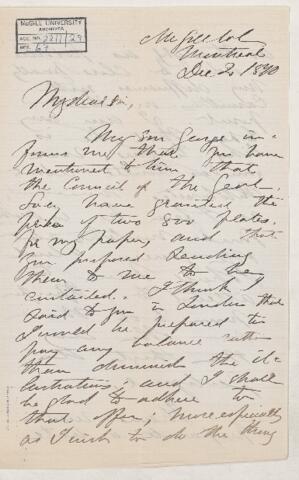 McGILL UNIVERSITY
ARCHIVES
ACC. NO.
REF. 67
McGill Col
Montreal
Dec 2, 1870
My dear Sir,
My son George in-
forms me that you have
mentioned to him that
the Council of the Geol.
Soc. have granted the
of two 800 plates
for my paper, and that
you proposed sending
them to me to be
curtailed. I think I
said to you in London that
I would be prepared to
pay any balance rather
than diminish the il-
lustrations, and I shall
be glad to adhere to
that offer; more especially
as I wish to do the thing